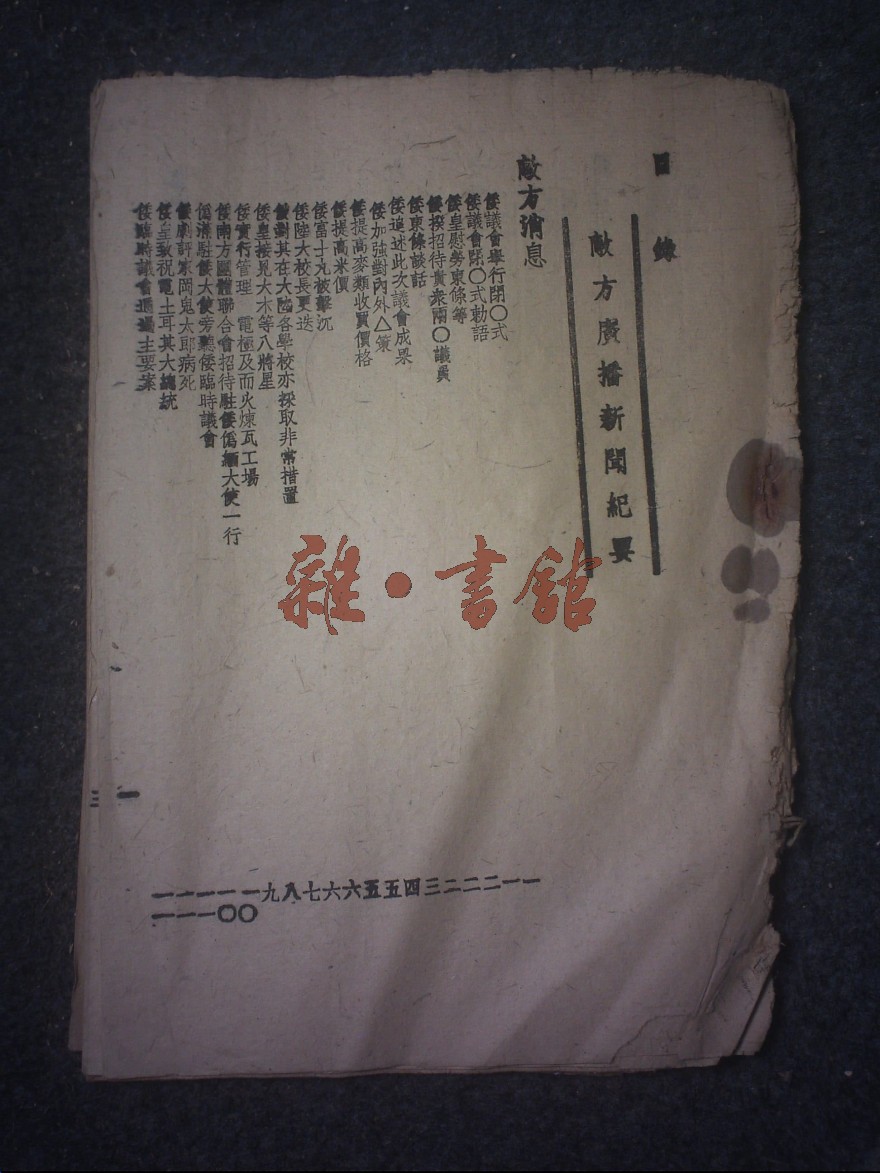 目錄
敵方廣播新聞紀要
敵方消息
倭議會舉行閉〇式
倭議會閉〇式勅語
倭皇慰勞東條等
倭揆招待貴衆兩〇議員
倭東條談話
倭追述此次議會成果
倭加強對內外△策
倭提高麥類收買價格
倭提高米價
倭富士丸被擊沉
倭陸大校長更迭
倭對其在大陸各學校亦採取非常措置
倭皇接見大木等八將星
倭實行管理 電極及而火煉瓦工場
倭南方團體聯合會招待駐倭僞緬大使一行
僞滿駐倭大使旁聽倭臨時議會
倭劇評家岡鬼太郎病死
倭皇致祝電土耳其大總統
倭臨時議會通過主要案
一
一
二
二
二
三
四
五
五
六
六
七
八
九
一〇
一〇
一一
一一
一一
雜·書館